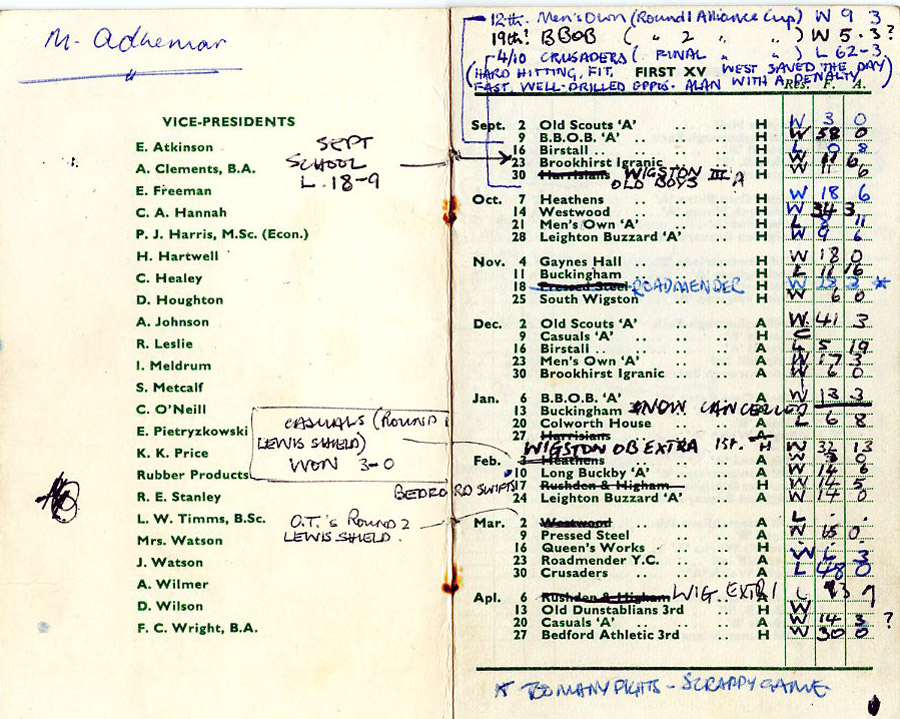 M. Adhemar
VICE-PRESIDENTS
E. Atkinson
A. Clements, B.A.
E. Freeman
C. A. Hannah
P. J. Harris, M.Sc. (Econ.)
H. Hartwell
C. Healey
D. Houghton
A. Johnson
R. Leslie
I. Meldrum
S. Metcalf
C. O'Neill
E. Pietryzkowski
K. K. Price
Rubber Products
R. E. Stanley
L. W. Timms, B.Sc.
Mrs. Watson
J. Watson
A. Wilmer
D. Wilson
F. C. Wright, B.A.
SEPT
SCHOOL
L. 18-9
CASUALS (ROUND 1
LEWIS SHIELD)
WON 3-0
BEDFORD SWIFTS
O.T.'s ROUND 2
LEWIS SHIELD.
12th. Men's Own (Round 1 Alliance Cup) W 9 3
19th? BBOB ( " 2 " " ) W 5.3?
4/10 CRUSADERS ( FINAL " " ) L 62-3.
(HARD HITTING, FIT, FIRST XV WEST SAVED THE DAY
FAST, WELL-DRILLED OPPOS. ALAN WITH A PENALTY)
Res. F. A.
Sept. 2 Old Scouts 'A' .. .. H W 3 0
9 B.B.O.B. 'A' .. .. H W 38 0
16 Birstall .. .. .. H L 0 8
23 Brookhirst Igranic .. .. H W 17 6
30 Harrisians WIGSTON III A H W 11 6
OLD BOYS
Oct. 7 Heathens .. .. .. H W 18 6
14 Westwood .. .. .. H W 34 3
21 Men's Own 'A' .. .. H L 8 11
28 Leighton Buzzard 'A' .. H W 9 6
Nov. 4 Gaynes Hall .. .. H W 18 0
11 Buckingham .. .. H L 11 16
18 Pressed Steel ROADMENDER H W 28 3 *
25 South Wigston .. .. H W 6 0
Dec. 2 Old Scouts 'A' .. .. A W 41 3
9 Casuals 'A' .. .. H C
16 Birstall .. .. .. A L 5 19
23 Men's Own 'A' .. .. A W 17 3
30 Brookhirst Igranic .. .. A W 6 0
Jan. 6 B.B.O.B. 'A' .. .. A W 13 3
13 Buckingham SNOW CANCELLED
20 Colworth House .. .. A L 6 8
27 Harrisians .. .. A
WIGSTON OB EXTRA 1ST. H W 32 13
Feb. 3 Heathens .. .. A W 3 0
10 Long Buckby 'A' .. .. A W 14 6
17 Rushden & Higham H W 14 5
24 Leighton Buzzard 'A' .. A W 14 0
Mar. 2 Westwood .. .. A L - -
9 Pressed Steel .. .. A W 15 0
16 Queen's Works .. .. H
23 Roadmender Y.C. .. .. A W 6 3
30 Crusaders .. .. A L 48 0
Apl. 6 Rushden & Higham WIG EXTRA 1 A L 9
13 Old Dunstablians 3rd .. H W
20 Casuals 'A' .. .. A W 14 3 ?
27 Bedford Athletic 3rd .. H W 30 0
* TOO MANY FIGHTS - SCRAPPY GAME